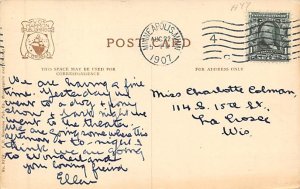 POST CARD
THIS SPACE MAY BE USED FOR CORRESPONDENCE
FOR ADDRESS ONLY
MINNEAPOLIS, MINN.
1907
4
We are having a fine
time. Yesterday we
went to a dog & pony
show & last night we
went to the theatre.
We are going somewhere this
afternoon & to-night I
think we are going
to Wonderland
your loving friend
Ellen
Miss Charlotte Colman
114 S. 15th St.
La Crosse
Wis.